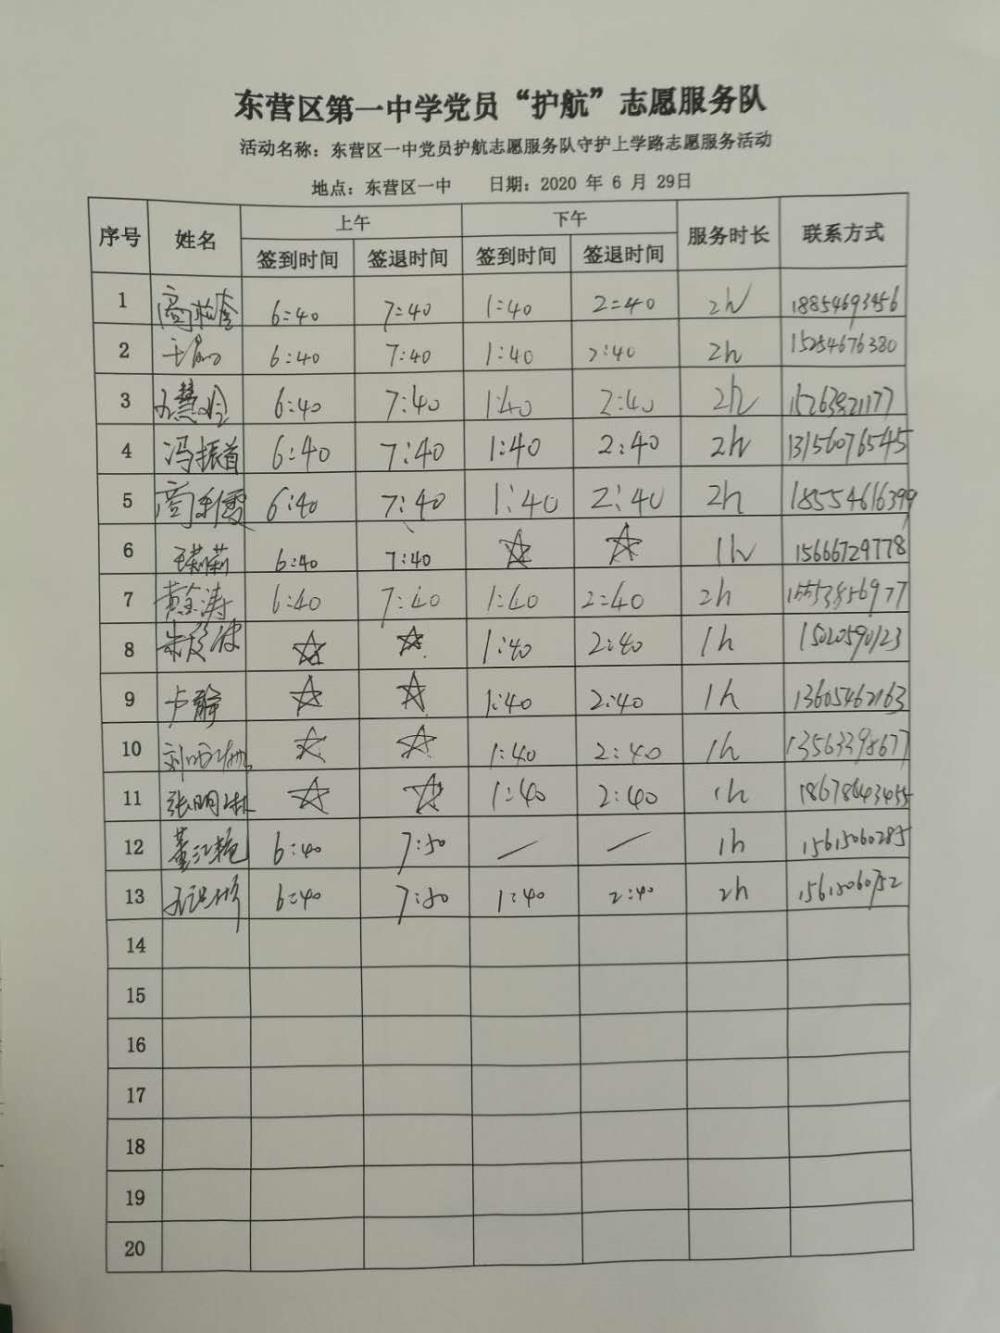 东营区第一中学党员“护航”志愿服务队
活动名称：东营区一中党员护航志愿服务队守护上学路志愿服务活动
地点：东营区一中 日期：2020 年 6 月 29日
序号 姓名 上午 下午 服务时长 联系方式
签到时间 签退时间 签到时间 签退时间
1 6:40 7:40 1:40 2:40 2h 18854693456
2 6:40 7:40 1:40 2:40 2h 15254676380
3 6:40 7:40 1:40 2:40 2h 15263821177
4 冯振首 6:40 7:40 1:40 2:40 2h 13156076545
5 6:40 7:40 1:40 2:40 2h 18554616399
6 王莉莉 6:40 7:40 ☆ ☆ 1h 15666729778
7 黄金涛 6:40 7:40 1:40 2:40 2h
8 ☆ ☆ 1:40 2:40 1h 15020590123
9 卢静 ☆ ☆ 1:40 2:40 1h 13605462163
10 ☆ ☆ 1:40 2:40 1h 13563398677
11 张明林 ☆ ☆ 1:40 2:40 1h
12 董江艳 6:40 7:50 — — 1h 15615060285
13 6:40 7:50 1:40 2:40 2h 15615060752
14
15
16
17
18
19
20